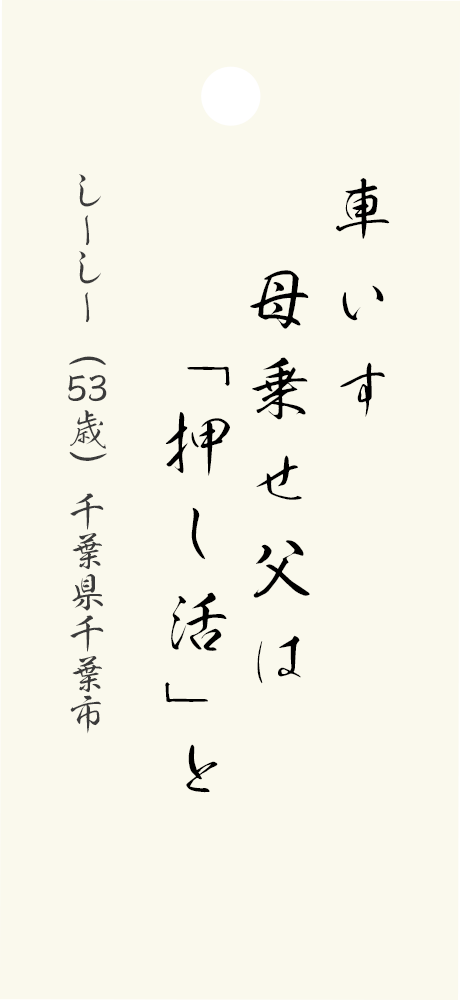 車いす
母乗せ父は
「押し活」と
しーしー（53歳）千葉県千葉市